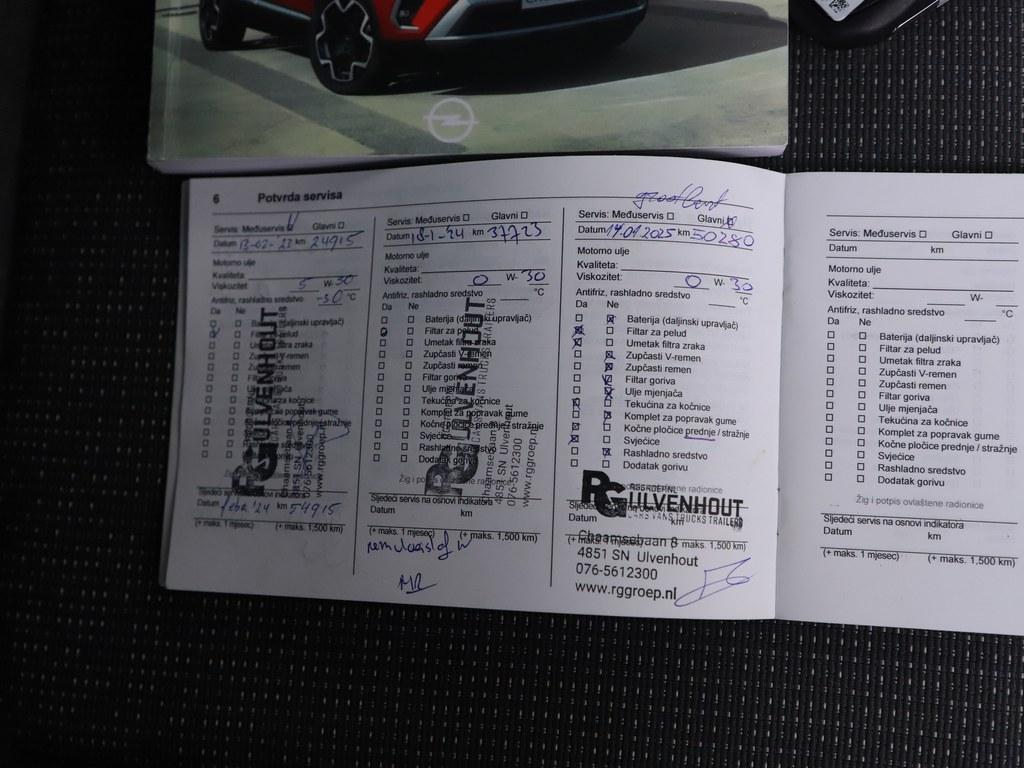 6 Potvrda servisa
Servis: Međuservis Glavni
Datum 13-02-23 km 24915
Motorno ulje
Kvaliteta:
Viskozitet: 5 W- 30
Antifriz, rashladno sredstvo -30 °C
Da Ne
Baterija (daljinski upravljač)
Filtar za pelud
Umetak filtra zraka
Zupčasti V-remen
Zupčasti remen
Filtar goriva
Ulje mjenjača
Tekućina za kočnice
Komplet za popravak gume
Kočne pločice prednje / stražnje
RG ULVENHOUT
Chaamsebaan 8
4851 SN Ulvenhout
076-5612300
www.rggroep.nl
Sljedeći servis na osnovi indikatora
Datum feb '24 km 54915
(+ maks. 1 mjesec) (+ maks. 1,500 km)
Servis: Međuservis Glavni
Datum 18-1-24 km 37723
Motorno ulje
Kvaliteta:
Viskozitet: 0 W- 30
Antifriz, rashladno sredstvo °C
Da Ne
Baterija (daljinski upravljač)
Filtar za pelud
Umetak filtra zraka
Zupčasti V-remen
Zupčasti remen
Filtar goriva
Ulje mjenjača
Tekućina za kočnice
Komplet za popravak gume
Kočne pločice prednje / stražnje
Svjećice
Rashladno sredstvo
Dodatak gorivu
RG ULVENHOUT
CARS VANS TRUCKS TRAILERS
Chaamsebaan 8
4851 SN Ulvenhout
076-5612300
www.rggroep.nl
Sljedeći servis na osnovi indikatora
Datum km
(+ maks. 1 mjesec) (+ maks. 1,500 km)
groot beurt
Servis: Međuservis Glavni
Datum 14.01.2025 km 50280
Motorno ulje
Kvaliteta:
Viskozitet: 0 W- 30
Antifriz, rashladno sredstvo °C
Da Ne
Baterija (daljinski upravljač)
Filtar za pelud
Umetak filtra zraka
Zupčasti V-remen
Zupčasti remen
Filtar goriva
Ulje mjenjača
Tekućina za kočnice
Komplet za popravak gume
Kočne pločice prednje / stražnje
Svjećice
Rashladno sredstvo
Dodatak gorivu
RGGROEP.NL
RG ULVENHOUT
CARS VANS TRUCKS TRAILERS
Datum km
(+ maks. 1 mjesec) (+ maks. 1,500 km)
Chaamsebaan 8
4851 SN Ulvenhout
076-5612300
www.rggroep.nl
Servis: Međuservis Glavni
Datum km
Motorno ulje
Kvaliteta:
Viskozitet: W-
Antifriz, rashladno sredstvo °C
Da Ne
Baterija (daljinski upravljač)
Filtar za pelud
Umetak filtra zraka
Zupčasti V-remen
Zupčasti remen
Filtar goriva
Ulje mjenjača
Tekućina za kočnice
Komplet za popravak gume
Kočne pločice prednje / stražnje
Svjećice
Rashladno sredstvo
Dodatak gorivu
Žig i potpis ovlaštene radionice
Sljedeći servis na osnovi indikatora
Datum km
(+ maks. 1 mjesec) (+ maks. 1,500 km)